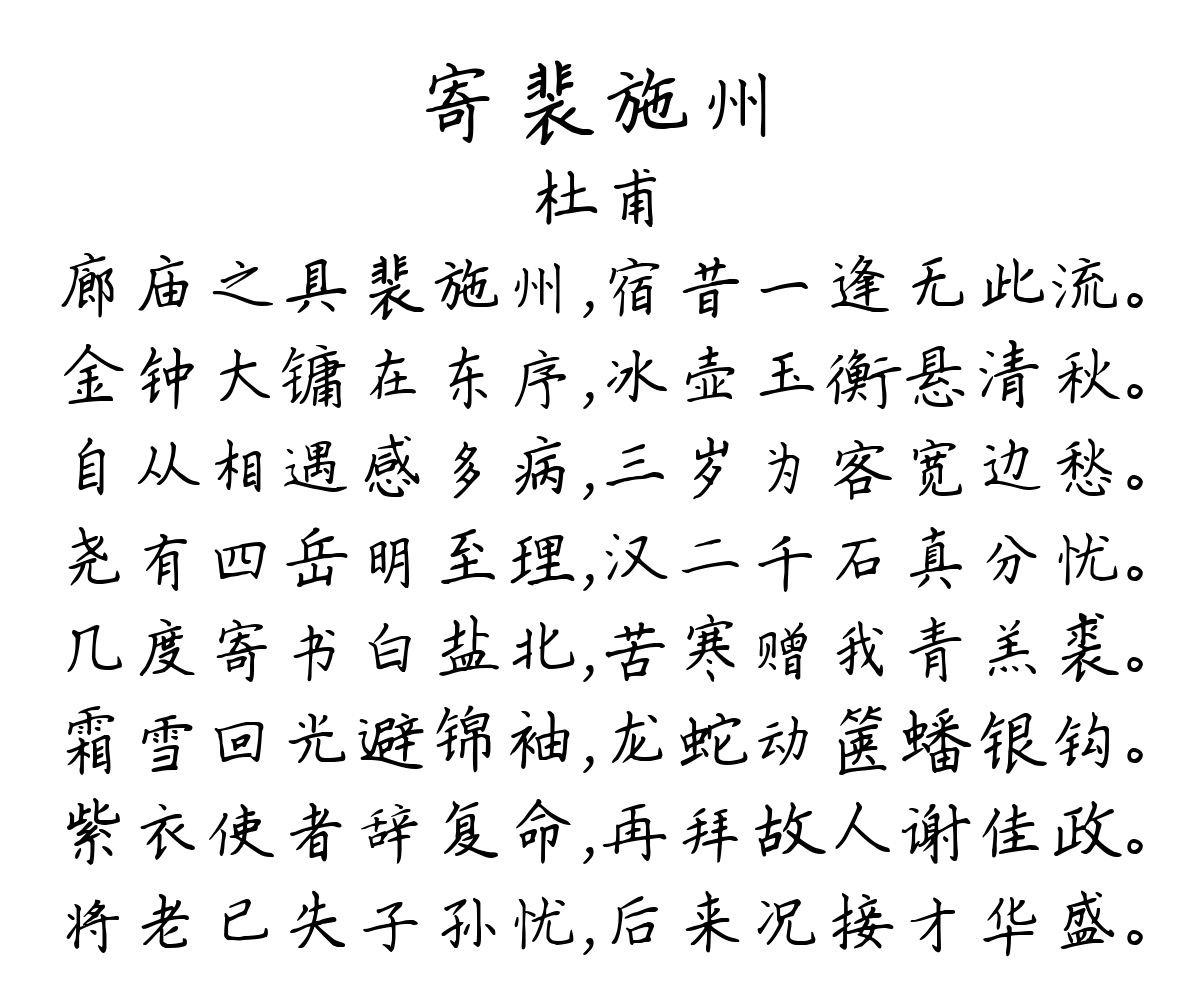 寄裴施州
杜甫
廊庙之具裴施州,宿昔一逢无此流。
金钟大镛在东序,冰壶玉衡悬清秋。
自从相遇感多病,三岁为客宽边愁。
尧有四岳明至理,汉二千石真分忧。
几度寄书白盐北,苦寒赠我青羔裘。
霜雪回光避锦袖,龙蛇动箧蟠银钩。
紫衣使者辞复命,再拜故人谢佳政。
将老已失子孙忧,后来况接才华盛。